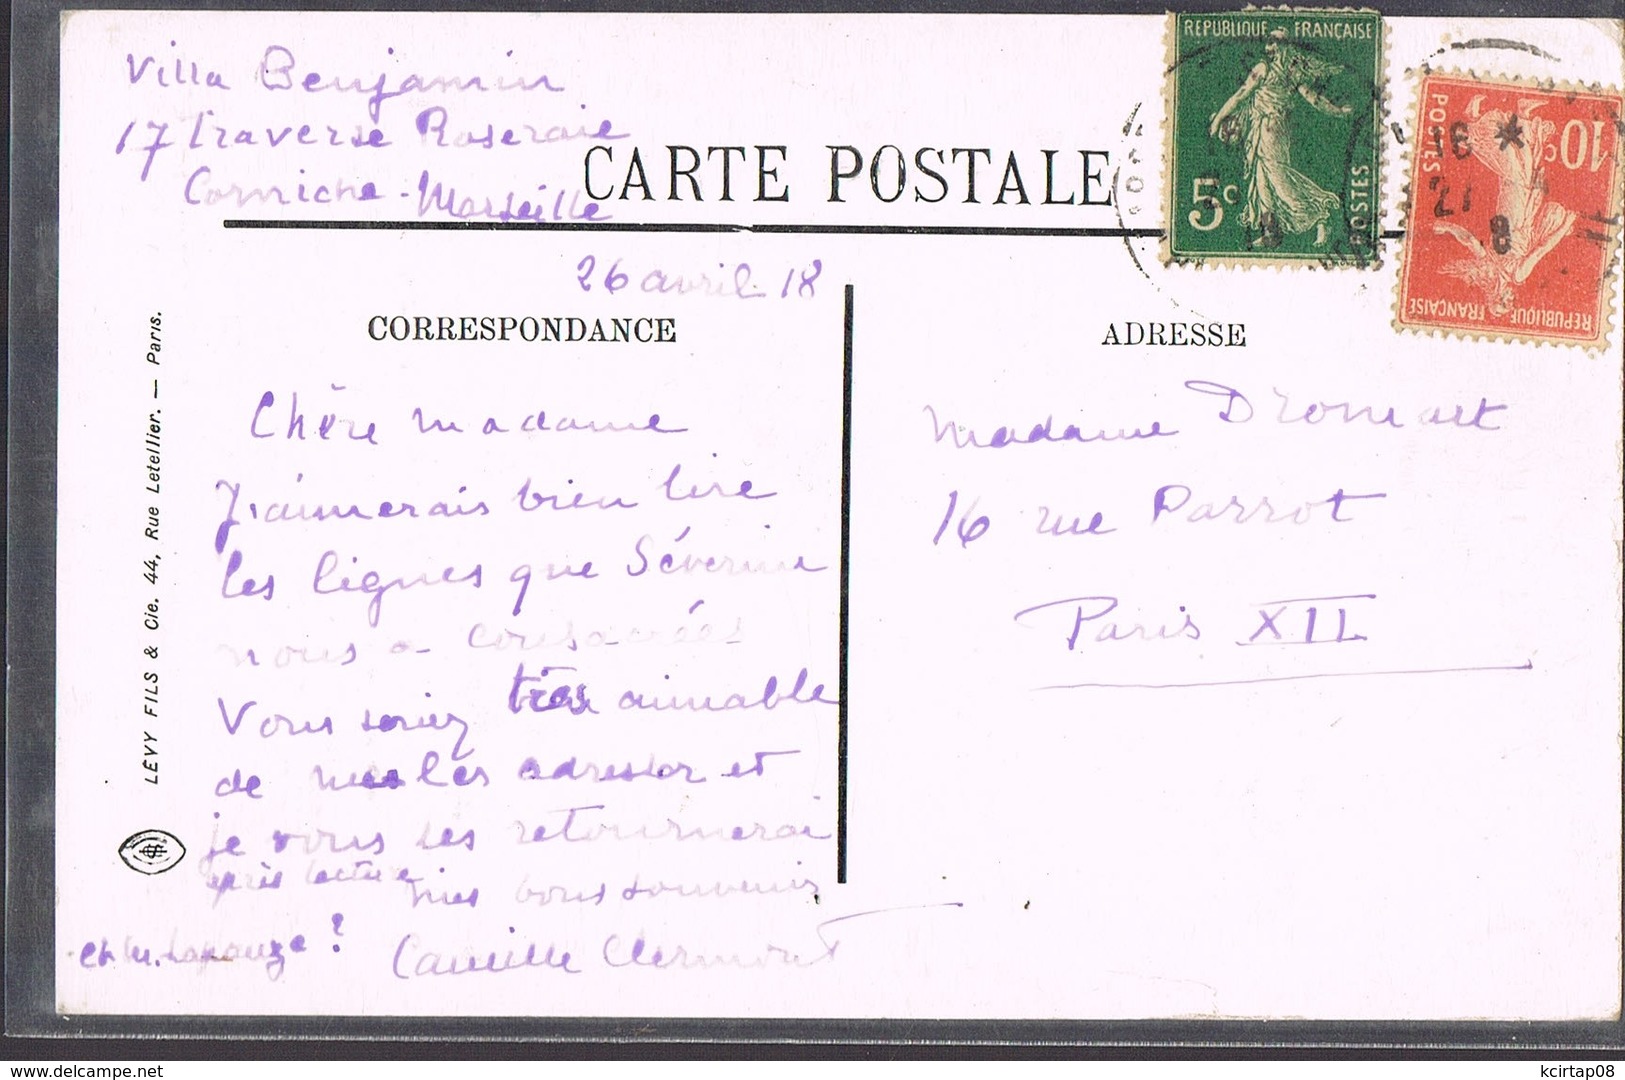 Villa Benjamin
17 Traverse Roseraie
Corniche - Marseille
CARTE POSTALE
REPUBLIQUE FRANÇAISE
5c
POSTES
REPUBLIQUE FRANÇAISE
10c
POSTES
16 *
27 4
18
26 avril 18
CORRESPONDANCE
ADRESSE
Chère madame
J'aimerais bien lire
les lignes que Séverine
nous a consacrées
Vous seriez très aimable
de me les adresser et
je vous les retournerai
après lecture
mes bons souvenirs
Camille Clermont
et M. Lapauze ?
Madame Dromart
16 rue Parrot
Paris XII
LÉVY FILS & Cie. 44, Rue Letellier. — Paris.
www.delcampe.net
kcirtap08